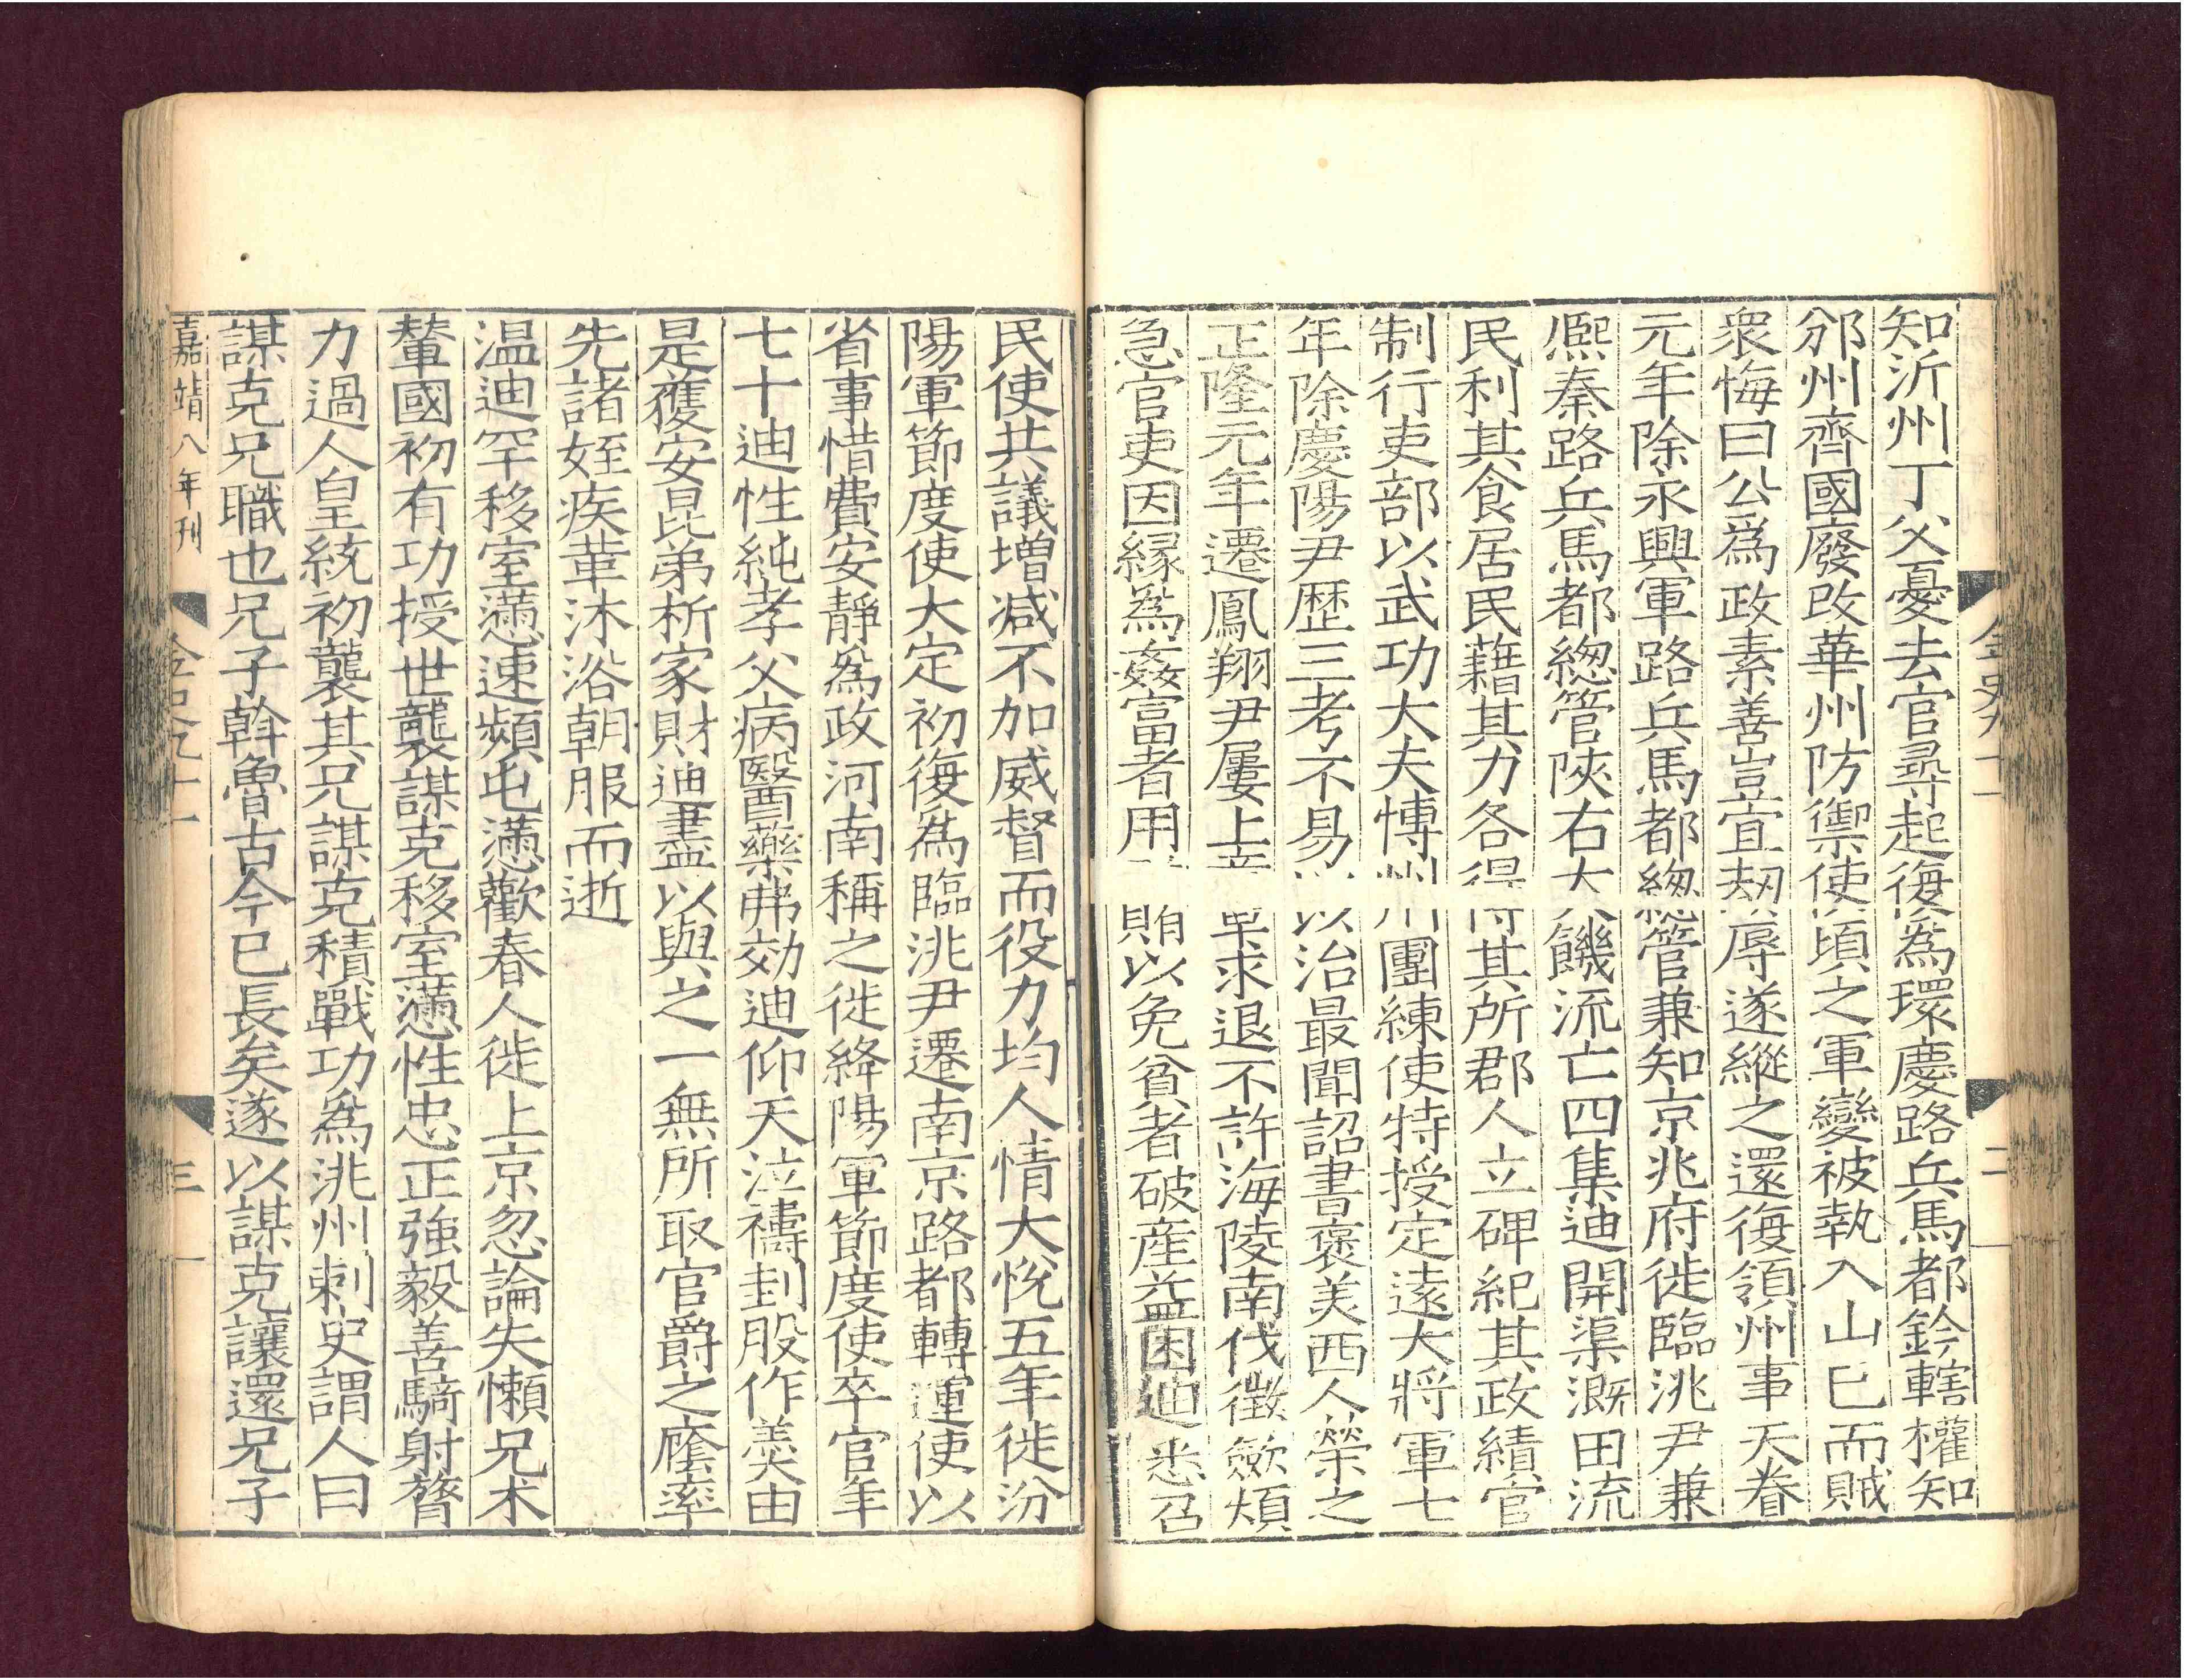 知沂州丁父憂去官尋起復爲環慶路兵馬都鈐轄權知
邠州齊國廢改華州防禦使頃之軍變被執入山巳而賊
衆悔曰公爲政素善豈宜刼辱遂縱之還復領州事天眷
元年除永興軍路兵馬都緫管兼知京兆府徙臨洮尹兼
熈秦路兵馬都緫管陝右大饑流亡四集迪開渠溉田流
民利其食居民藉其力各得其所郡人立碑紀其政績官
制行吏部以武功大夫愽州團練使特授定遠大將軍七
年除慶陽尹歴三考不易以治最聞詔書褒美西人榮之
正隆元年遷鳳翔尹屢上章求退不許海陵南伐徵歛煩
急官吏因緣爲姦富者用賄以免貧者破産益困迪悉召
民使共議增减不加威督而役力均人情大悅五年徙汾
陽軍節度使大定初復爲臨洮尹遷南京路都轉運使以
省事惜費安靜爲政河南稱之徙絳陽軍節度使卒官年
七十迪性純孝父病醫藥弗効迪仰天泣禱刲股作羹由
是獲安昆弟析家財迪盡以與之一無所取官爵之廕率
先諸姪疾革沐浴朝服而逝
温迪罕移室懣速頻屯懣歡春人徙上京忽論失懶兄术
輦國初有功授世襲謀克移室懣性忠正強毅善騎射膂
力過人皇統初襲其兄謀克積戰功爲洮州刺史謂人曰
謀克兄職也兄子斡魯古今巳長矣遂以謀克讓還兄子
嘉靖八年刊